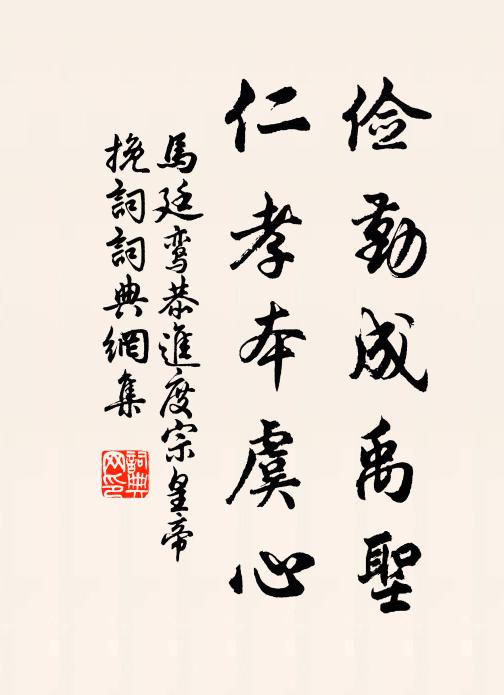 俭勤成禹聖
仁孝本虞心
馬廷鸾恭進度宗皇帝
挽詞詞典網集
詞典
网印